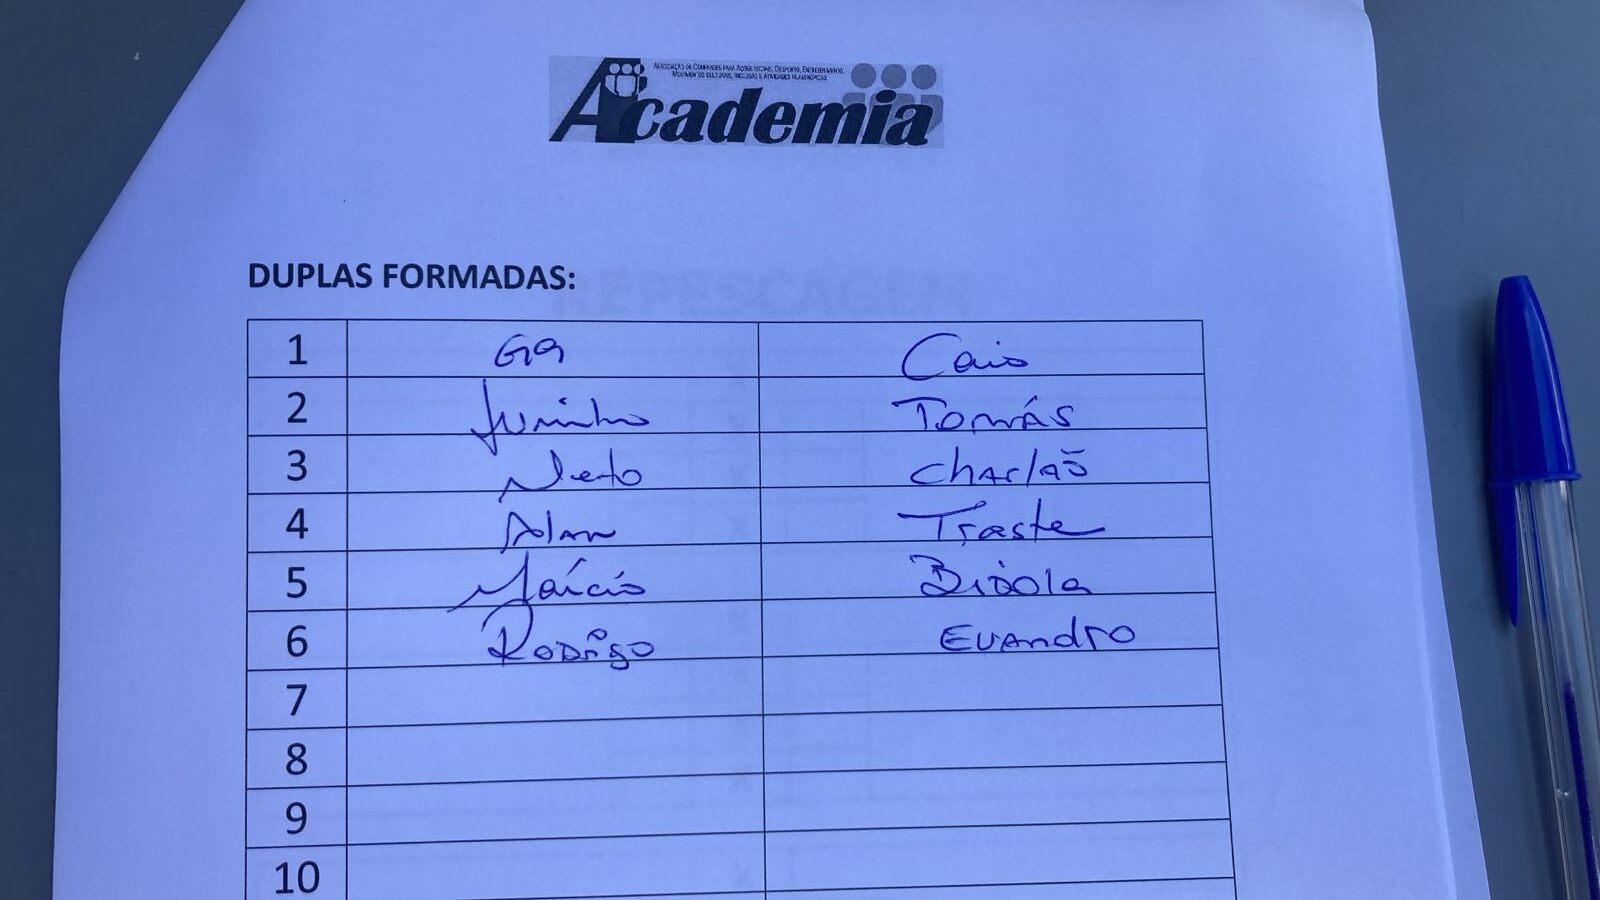 Associação de Confrades para Ações Sociais, Desporto, Entretenimento,
Movimentos Culturais, Inclusão e Atividades Filantrópicas
Academia
REPESCAGEM
DUPLAS FORMADAS:
1 Caio
2 Juninho Tomás
3 Neto Charlão
4 Alan Traste
5 Maício
6 Rodrigo Evandro
7
8
9
10